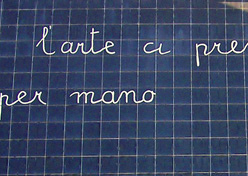 l'arte ci pre
per mano